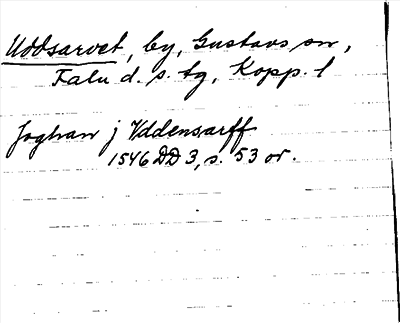 Uddsarvet, by, Gustavs sn,
Falu d. s. tg, Kopp. l
Joghan j Vddensarff
1546 DD 3, s. 53 or.